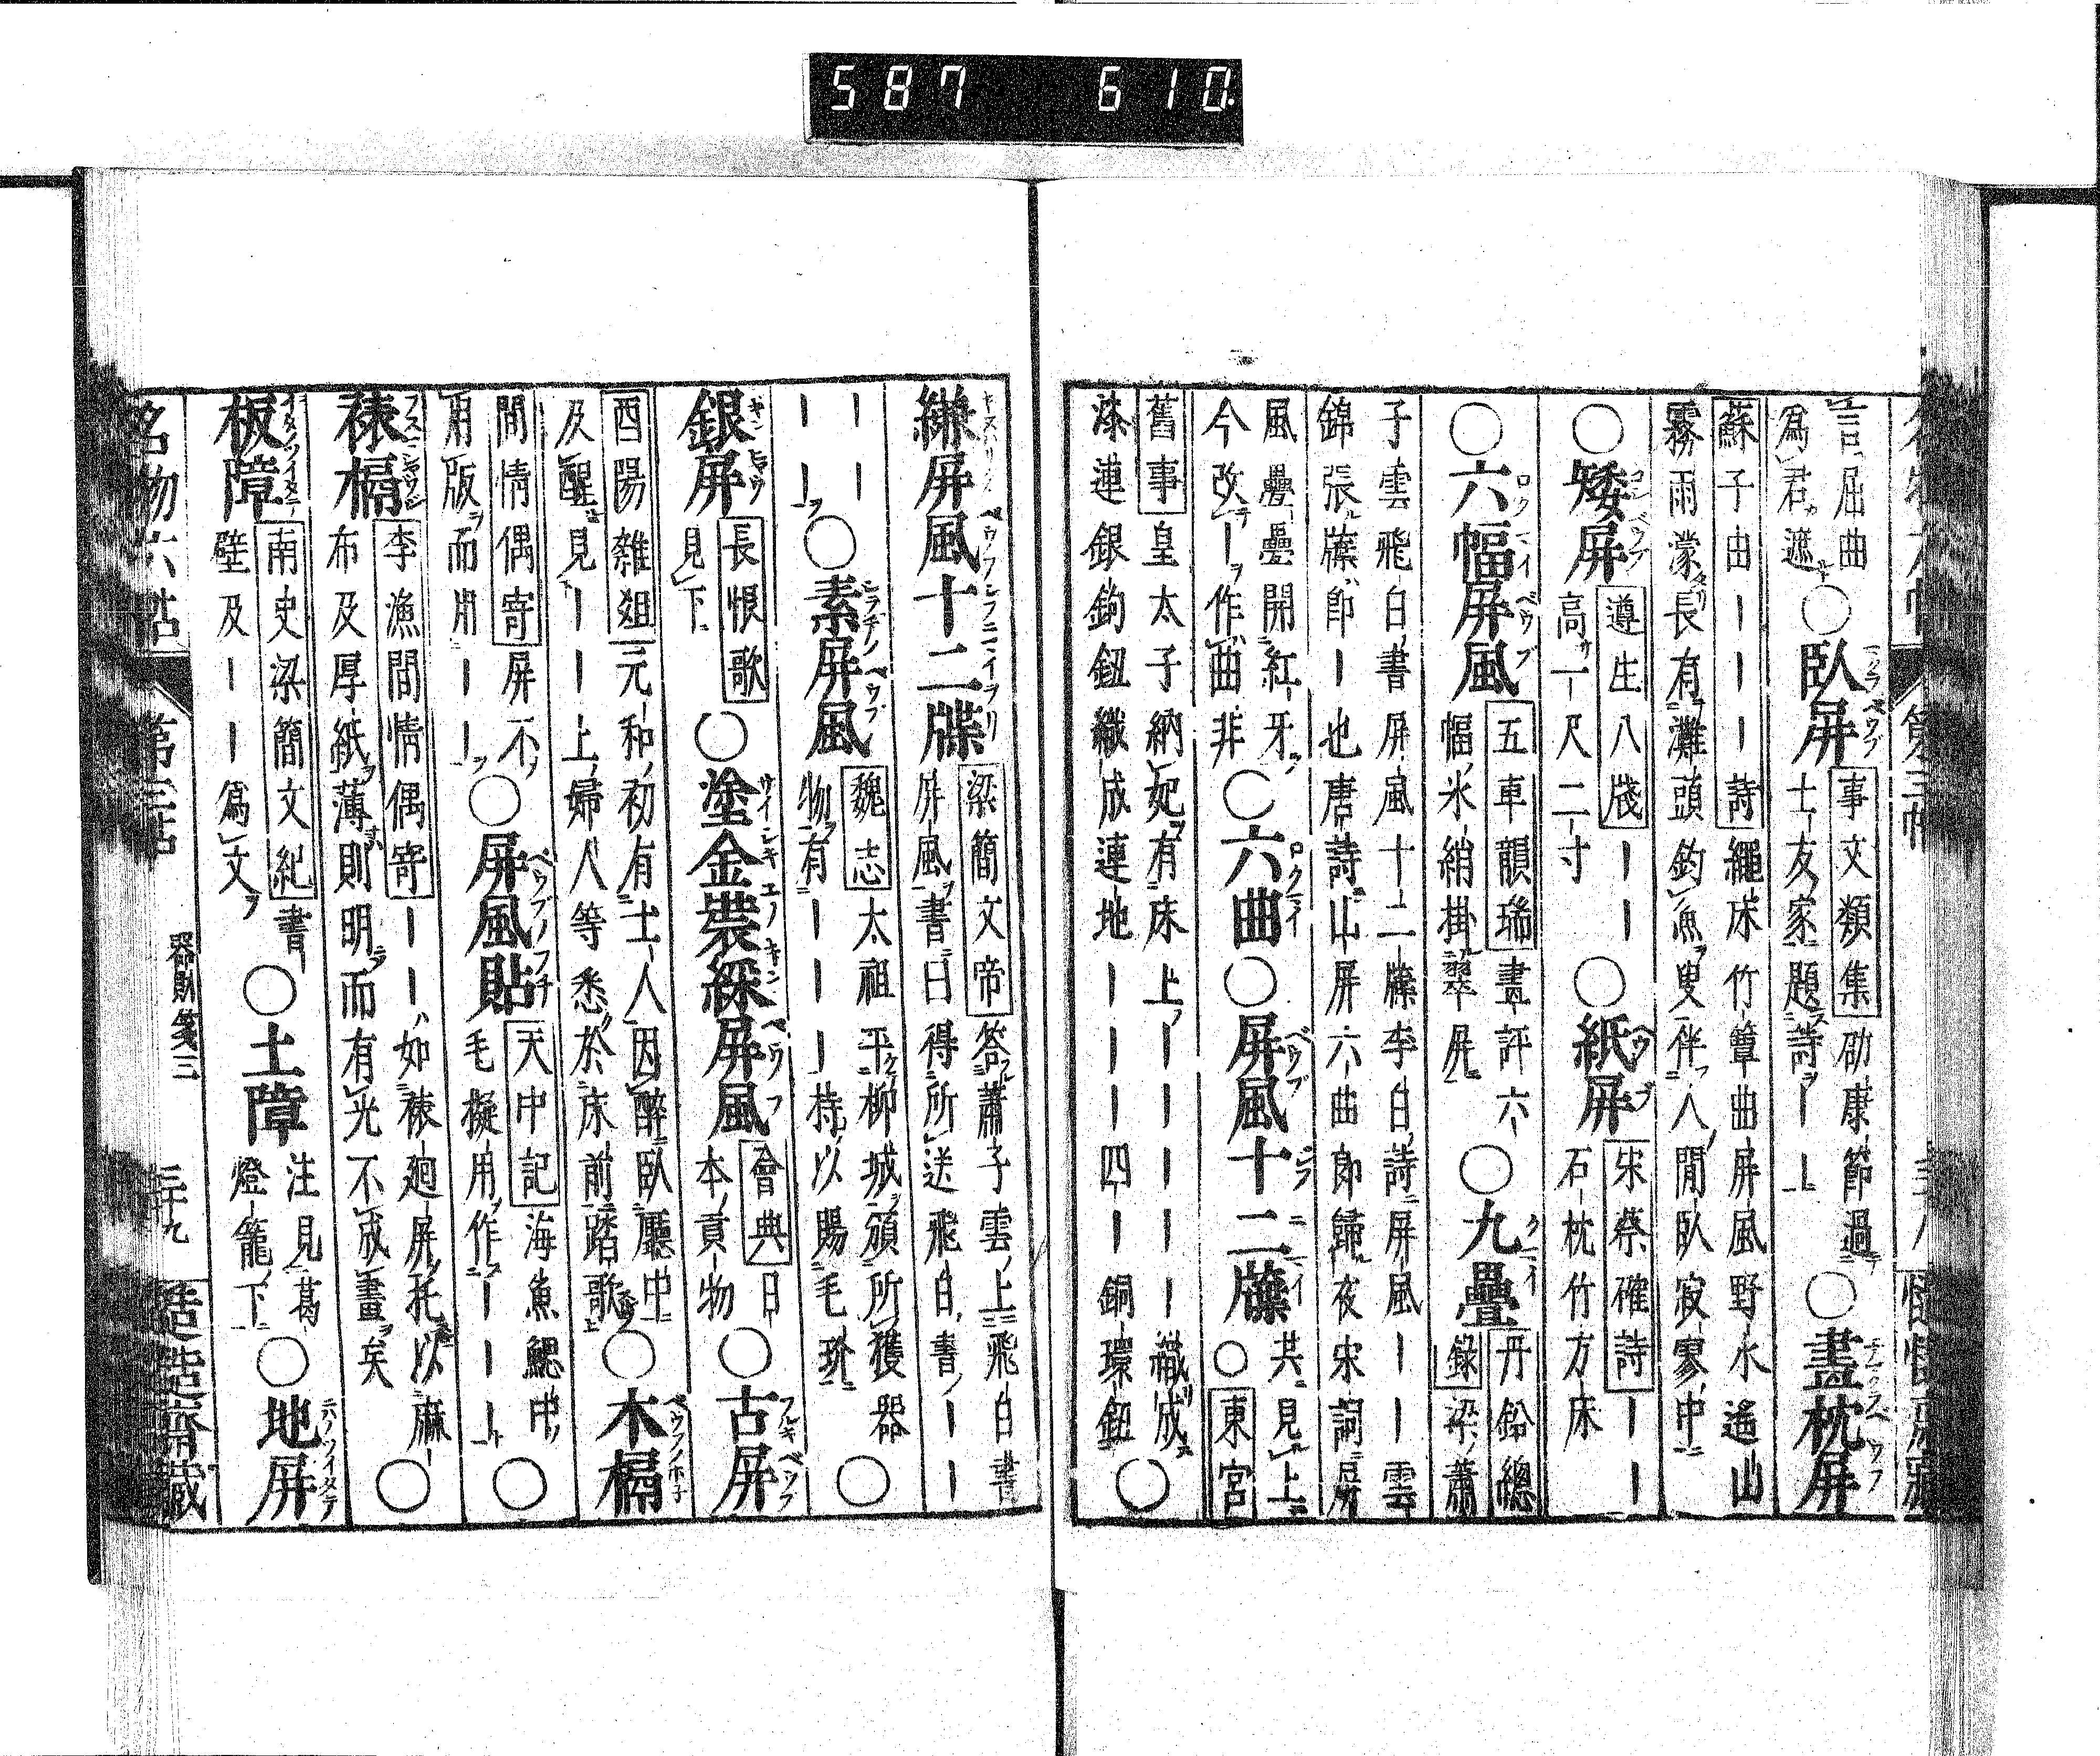 587 610
言屈曲
爲君遮○臥屏 事文類集 邵康節過
士友家題詩ー上○畫枕屏
蘇子由ーーー詩 繩床竹簟曲屏風野水遙山
霧雨濛長有灘頭釣魚叟伴人閒臥寂寥中
○矮屏 遵生八牋ーー
高一尺二寸○紙屏 宋蔡確詩ーー
石枕竹方床
○六幅屏風 五車韻瑞 畫評六
幅氷綃掛翠屏○九疊 丹鉛總
錄 梁蕭
子雲飛白書屏風十二牒李白詩屏風ーー雲
錦張牒卽ー也唐詩山屏六曲郎歸夜宋詞屏
風疊疊開紅牙
今改ー作曲非○六曲○屏風十二牒 共見上
○東宮
舊事 皇太子納妃有床上ーーーーー織成
漆連銀鉤鈕織成連地ーーーー四ー銅環鈕○
縑屏風十二牒 梁簡文帝 答蕭子雲上飛白書
屏風書曰得所送飛白書ーー
ーー
ーー○素屏風 魏志 太祖平柳城頒所獲器
物有ーーー持以賜毛玠○
銀屏 長恨歌
見下○塗金裝綵屏風 會典 日
本貢物○古屏
酉陽雜俎 元和初有士人因醉臥廳中
及醒見ーー上婦人等悉於床前踏歌○木槅
閒情偶寄 屏不
用版而用ーー○屏風貼 天中記 海魚鰓中
毛擬用作ーーー○
裱槅 李漁閒情偶寄ーー如裱廻屏托以麻
布及厚紙薄則明而有光不成畫矣○
板障 南史梁簡文紀 書
壁及ーー爲文○土障 注見葛
燈籠下○地屏
名物六帖 第三帖 器財箋三 三十九